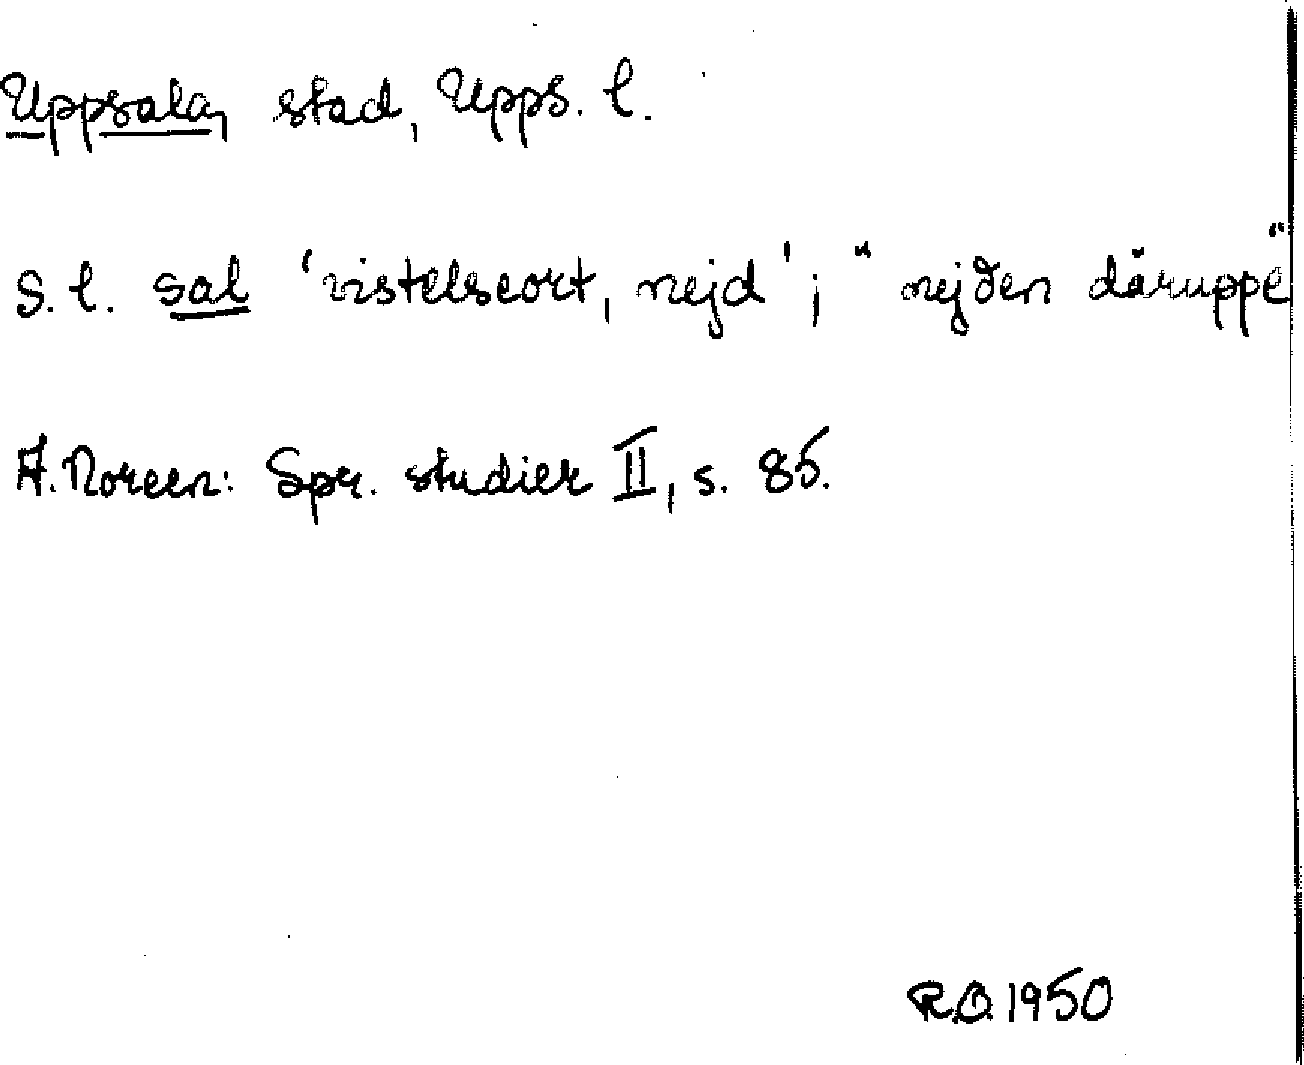 Uppsala, stad, Upps. l.
S.l. sal 'vistelseort, nejd'; "nejden däruppe"
A. Noreen: Spr. studier II, s. 85.
R.O. 1950